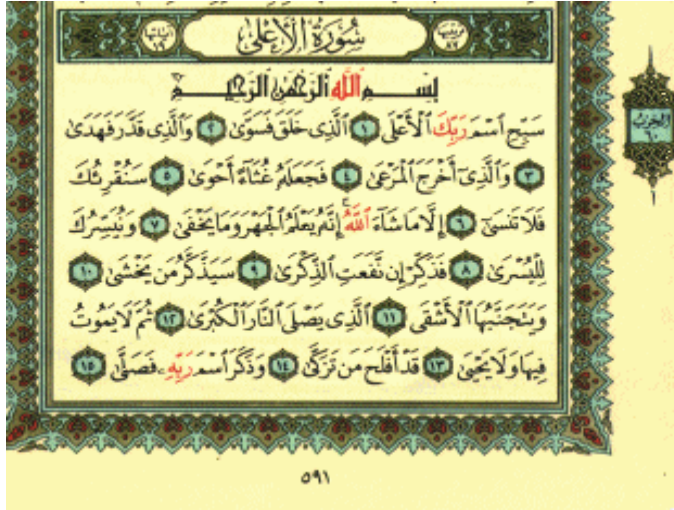 سُورَةُ الأَعْلَىٰ
بِسْمِ ٱللَّهِ ٱلرَّحْمَٰنِ ٱلرَّحِيمِ
سَبِّحِ ٱسْمَ رَبِّكَ ٱلْأَعْلَى ١ ٱلَّذِى خَلَقَ فَسَوَّىٰ ٢ وَٱلَّذِى قَدَّرَ فَهَدَىٰ
٣ وَٱلَّذِىٓ أَخْرَجَ ٱلْمَرْعَىٰ ٤ فَجَعَلَهُۥ غُثَآءً أَحْوَىٰ ٥ سَنُقْرِئُكَ
فَلَا تَنسَىٰٓ ٦ إِلَّا مَا شَآءَ ٱللَّهُ ۚ إِنَّهُۥ يَعْلَمُ ٱلْجَهْرَ وَمَا يَخْفَىٰ ٧ وَنُيَسِّرُكَ
لِلْيُسْرَىٰ ٨ فَذَكِّرْ إِن نَّفَعَتِ ٱلذِّكْرَىٰ ٩ سَيَذَّكَّرُ مَن يَخْشَىٰ ١٠
وَيَتَجَنَّبُهَا ٱلْأَشْقَى ١١ ٱلَّذِى يَصْلَى ٱلنَّارَ ٱلْكُبْرَىٰ ١٢ ثُمَّ لَا يَمُوتُ
فِيهَا وَلَا يَحْيَىٰ ١٣ قَدْ أَفْلَحَ مَن تَزَكَّىٰ ١٤ وَذَكَرَ ٱسْمَ رَبِّهِۦ فَصَلَّىٰ ١٥
الحزب
٦٠
٥٩١